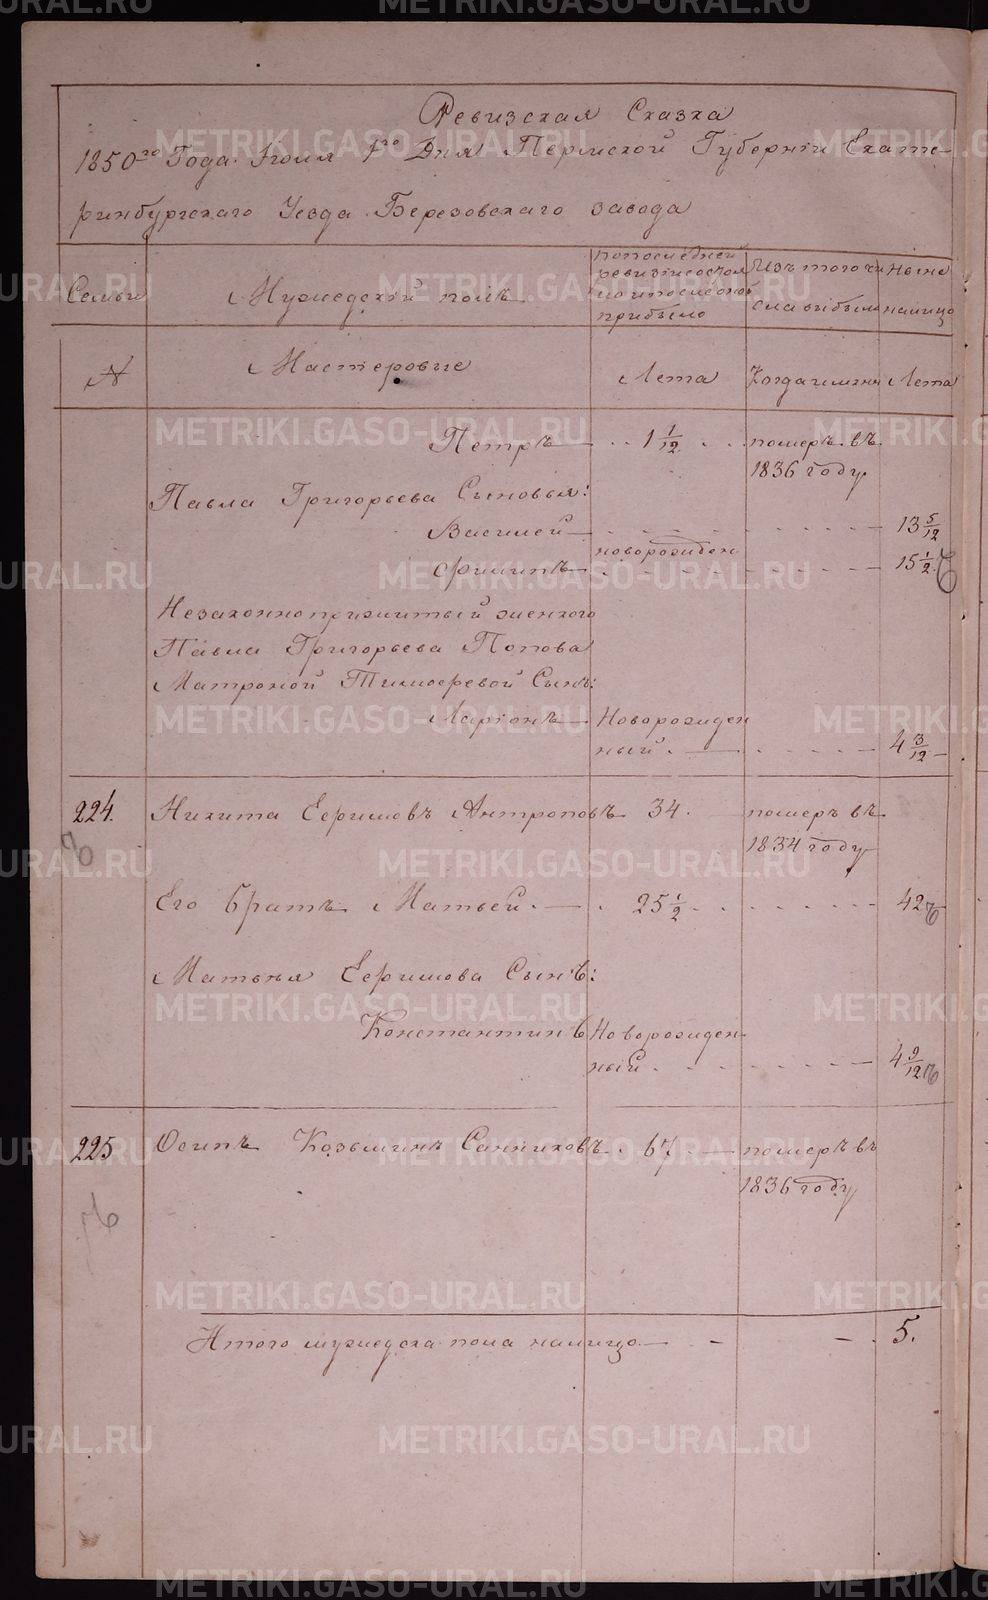 Ревизская Сказка
1850го Года Июля 1го Дня Пермской Губернiи Екате-
ринбургскаго Уезда Березовскаго завода
Семьи
Мужедскiй полъ
по последней ревизiи состоя ло и после оной прибыло
Изъ того чи сла выбыли
Ныне налицо
№
Мастеровые
Лета
Когда именно
Лета
Петръ 1 1/12 померъ въ
1836 году
Павла Григорьева Сыновья:
Василей 13 5/12
Филипъ новорожден 15 1/2
Незаконноприжитый женкого
Павла Григорьева Попова
Матроной Тимофеевой Сынъ:
Ларiонъ Новорожден
ный 4 3/12
224. Никита Ефимовъ Антроповъ 34. померъ въ
1834 году
Его братъ Матвей. 25 1/2 42
Матвея Ефимова Сынъ:
Константинъ Новорожден
ный 4 9/12
225 Осипъ Козьминъ Санниковъ 67 померъ въ
1836 году
Итого мужедска пола налицо 5.
METRIKI.GASO-URAL.RU